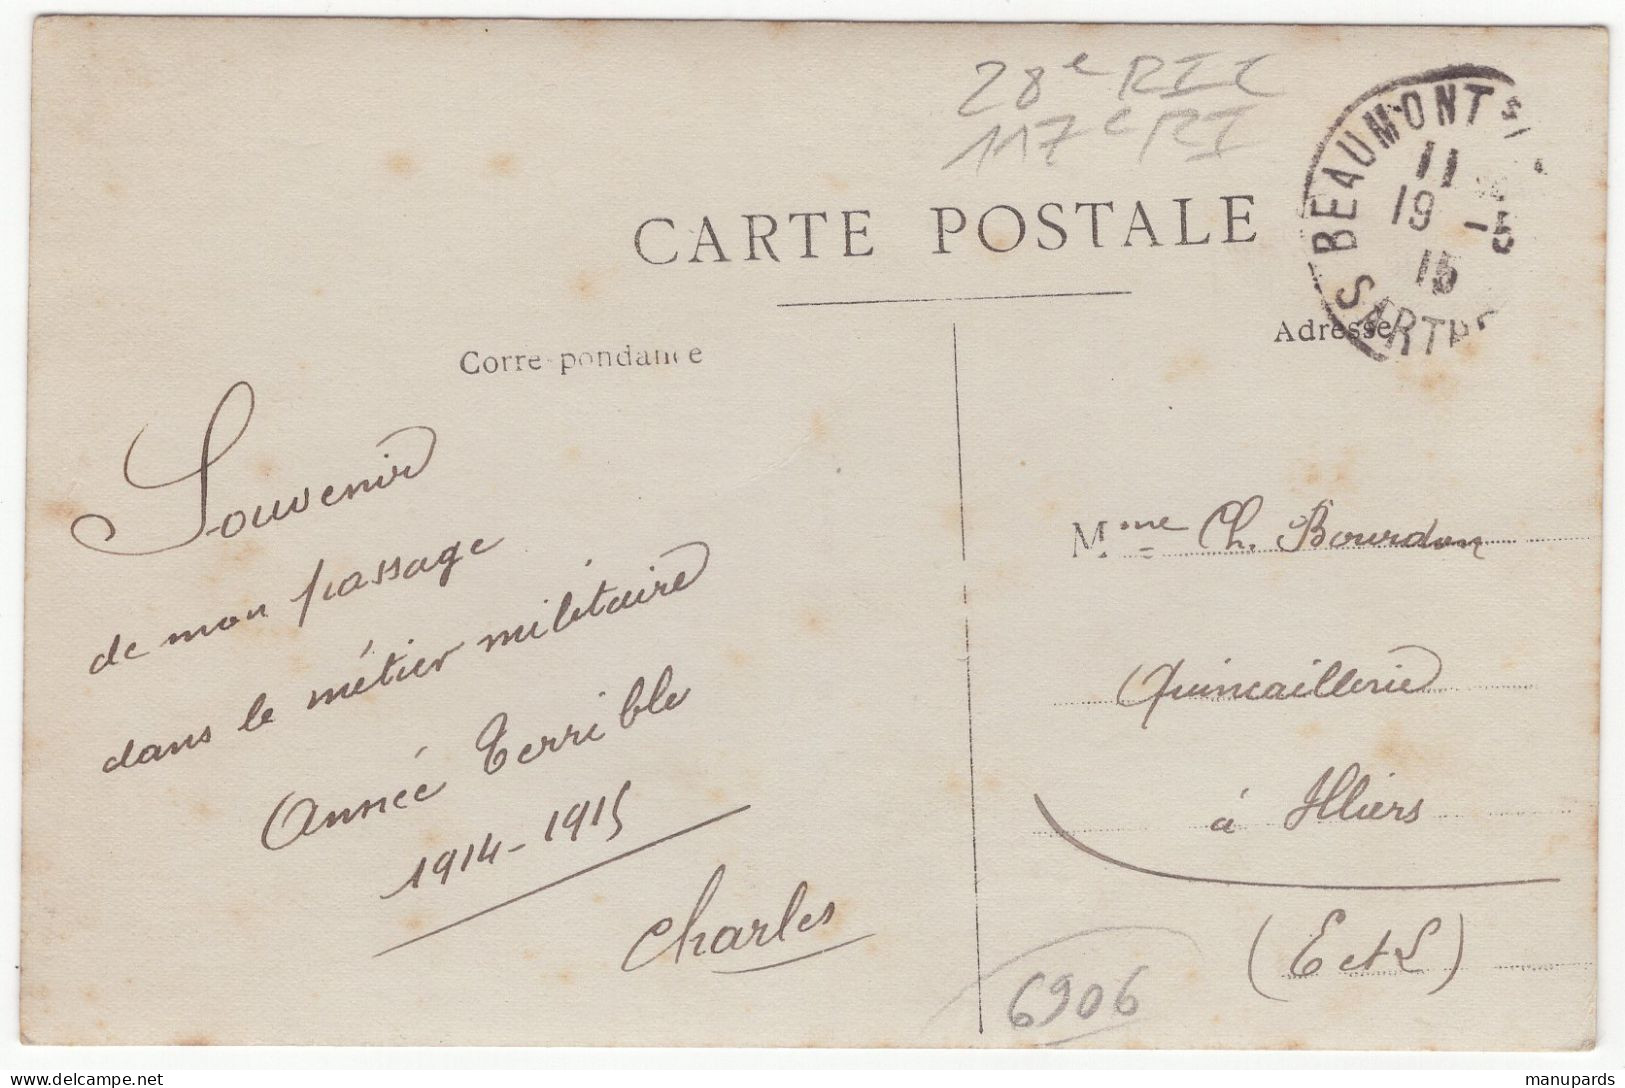 28e RII
117e RI
CARTE POSTALE
BEAUMONT
11
19 -5
15
SARTHE
Correspondance
Adresse
Souvenir
de mon passage
dans le métier militaire
Année Terrible
1914-1915
Charles
Mme Ch. Bourdon
Quincaillerie
à Illiers
(E et L)
6906
manupards